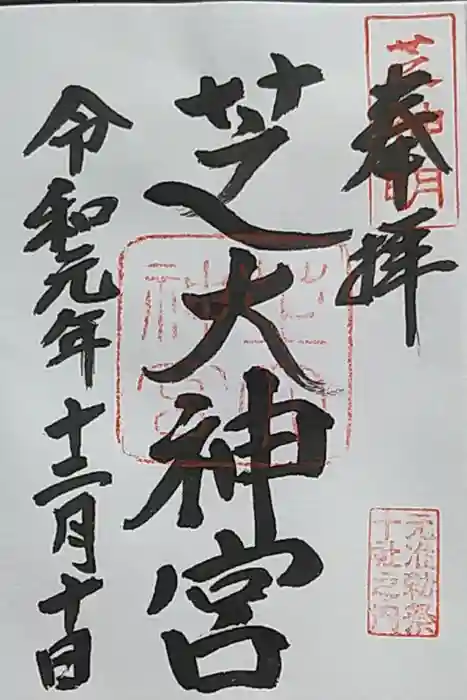 奉拝
芝神明
元准勅祭
十社之内
芝大神宮
令和元年十二月十日